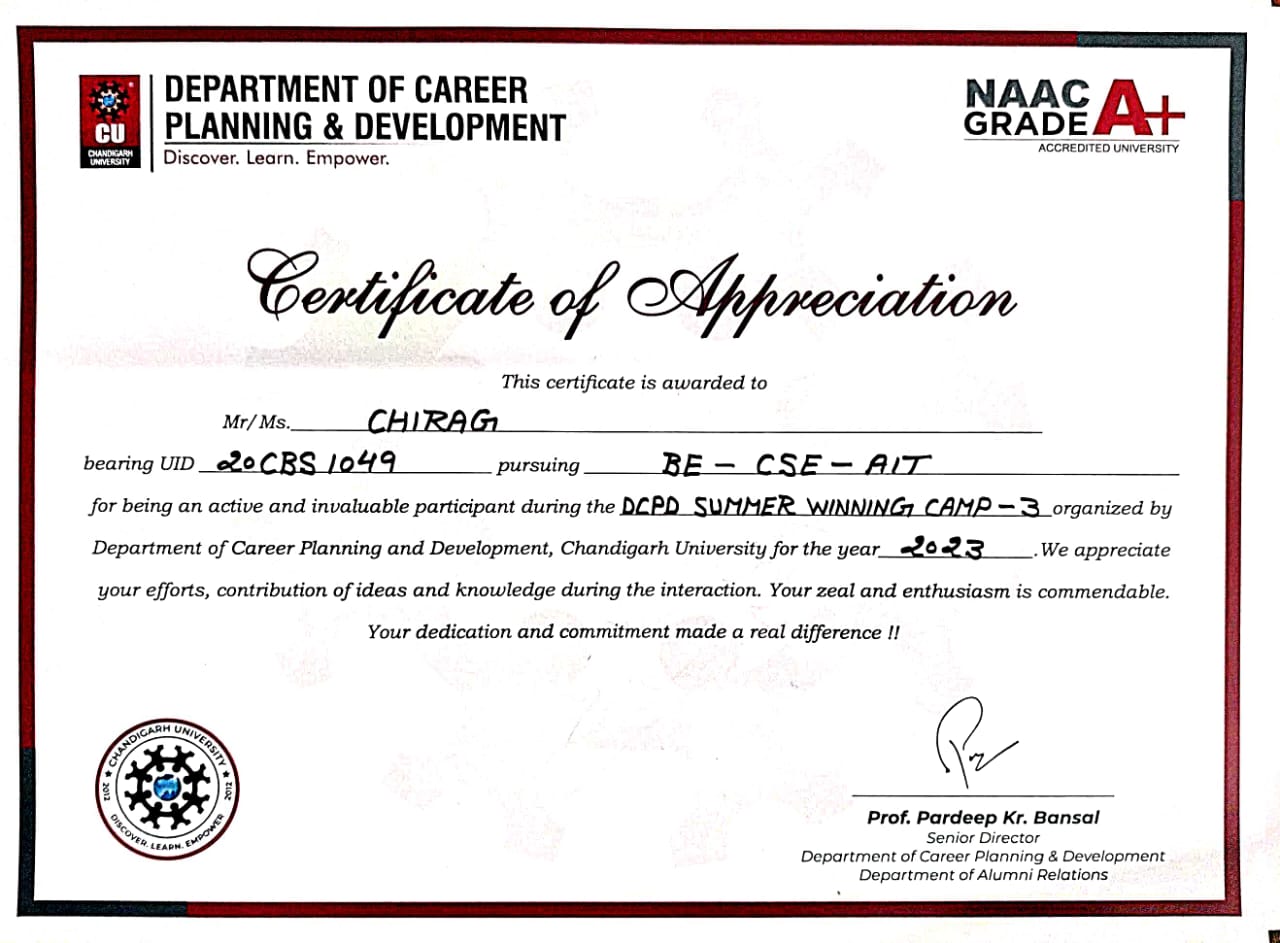 CU
CHANDIGARH
UNIVERSITY
DEPARTMENT OF CAREER
PLANNING & DEVELOPMENT
Discover. Learn. Empower.
NAAC
GRADE A+
ACCREDITED UNIVERSITY
Certificate of Appreciation
This certificate is awarded to
Mr/Ms. CHIRAG
bearing UID 20CBS1049 pursuing BE - CSE - AIT
for being an active and invaluable participant during the DCPD SUMMER WINNING CAMP-3 organized by
Department of Career Planning and Development, Chandigarh University for the year 2023. We appreciate
your efforts, contribution of ideas and knowledge during the interaction. Your zeal and enthusiasm is commendable.
Your dedication and commitment made a real difference !!
CHANDIGARH UNIVERSITY
2012 2012
DISCOVER. LEARN. EMPOWER
Prof. Pardeep Kr. Bansal
Senior Director
Department of Career Planning & Development
Department of Alumni Relations